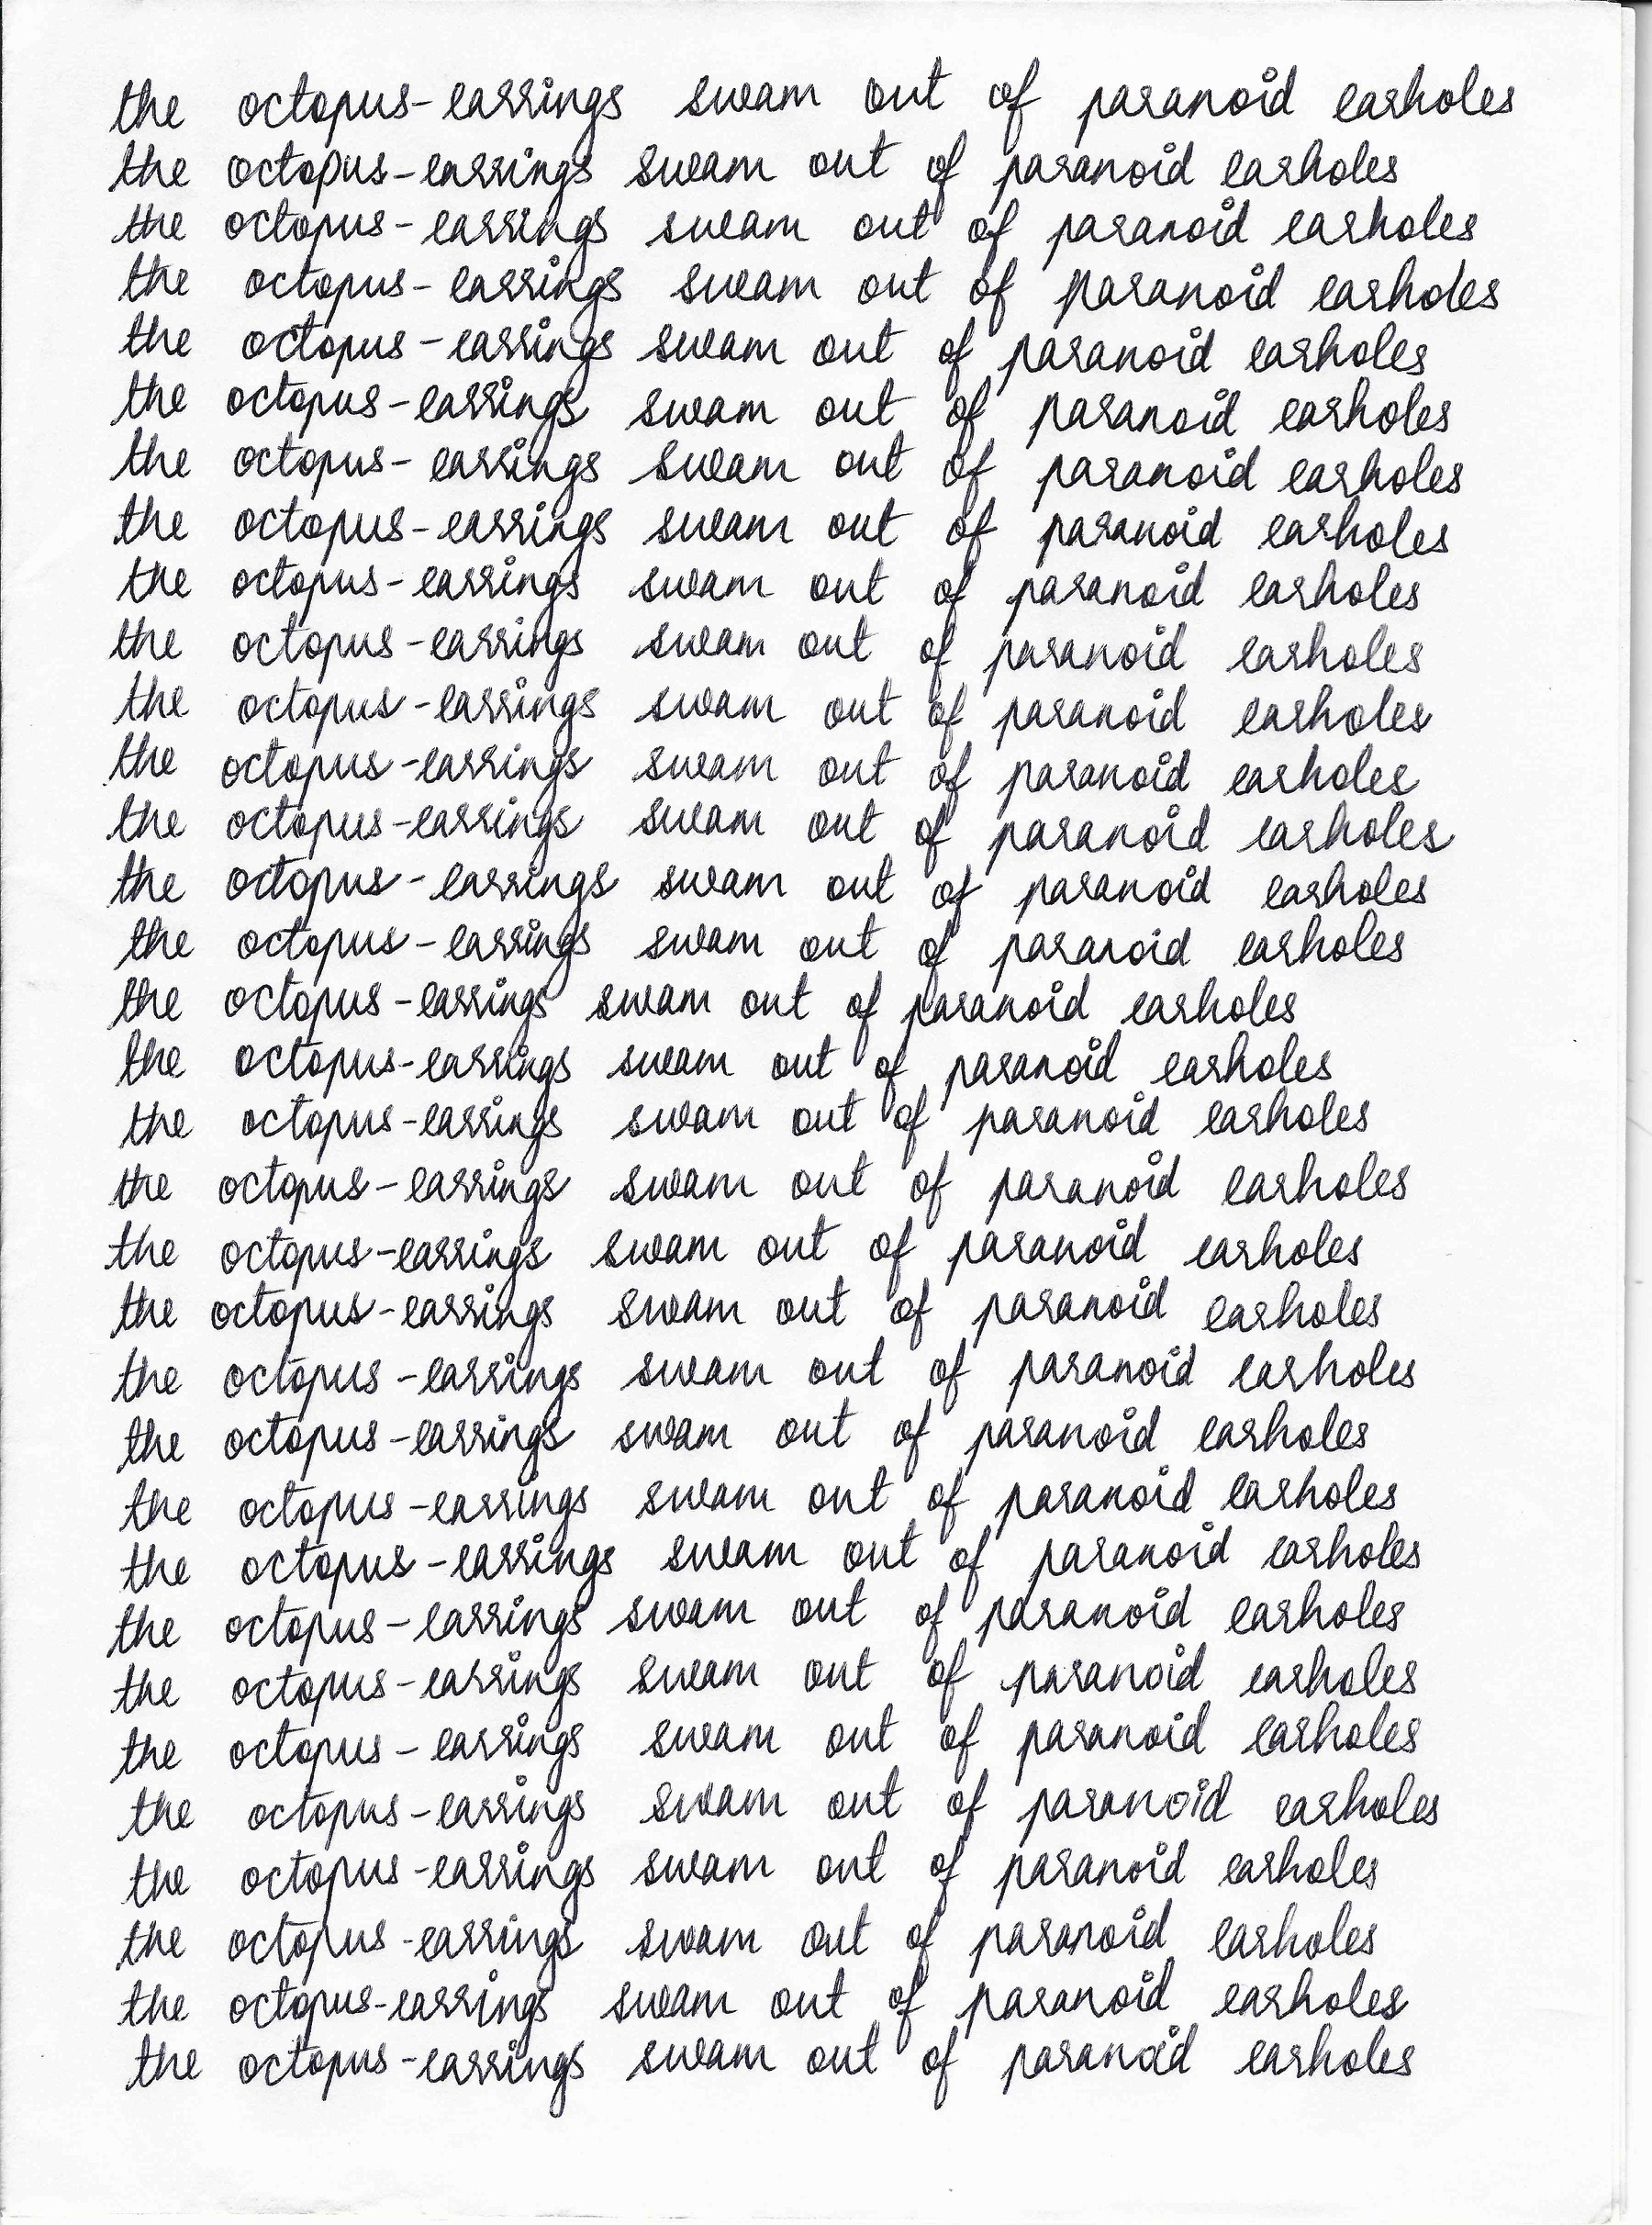 the octopus-earrings swam out of paranoid earholes
the octopus-earrings swam out of paranoid earholes
the octopus-earrings swam out of paranoid earholes
the octopus-earrings swam out of paranoid earholes
the octopus-earrings swam out of paranoid earholes
the octopus-earrings swam out of paranoid earholes
the octopus-earrings swam out of paranoid earholes
the octopus-earrings swam out of paranoid earholes
the octopus-earrings swam out of paranoid earholes
the octopus-earrings swam out of paranoid earholes
the octopus-earrings swam out of paranoid earholes
the octopus-earrings swam out of paranoid earholes
the octopus-earrings swam out of paranoid earholes
the octopus-earrings swam out of paranoid earholes
the octopus-earrings swam out of paranoid earholes
the octopus-earrings swam out of paranoid earholes
the octopus-earrings swam out of paranoid earholes
the octopus-earrings swam out of paranoid earholes
the octopus-earrings swam out of paranoid earholes
the octopus-earrings swam out of paranoid earholes
the octopus-earrings swam out of paranoid earholes
the octopus-earrings swam out of paranoid earholes
the octopus-earrings swam out of paranoid earholes
the octopus-earrings swam out of paranoid earholes
the octopus-earrings swam out of paranoid earholes
the octopus-earrings swam out of paranoid earholes
the octopus-earrings swam out of paranoid earholes
the octopus-earrings swam out of paranoid earholes
the octopus-earrings swam out of paranoid earholes
the octopus-earrings swam out of paranoid earholes
the octopus-earrings swam out of paranoid earholes
the octopus-earrings swam out of paranoid earholes
the octopus-earrings swam out of paranoid earholes